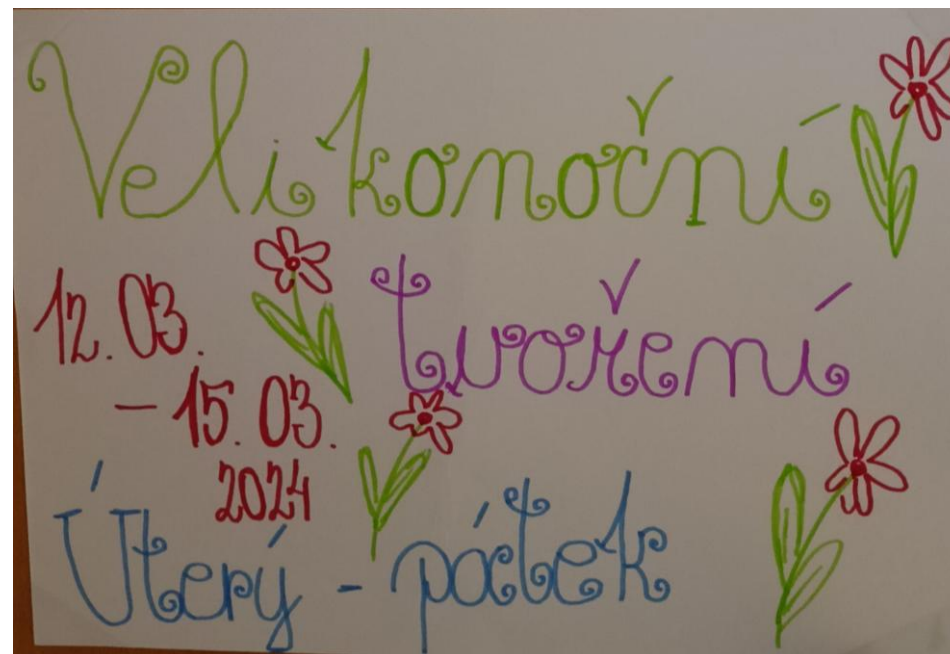 Velikonoční
tvoření
12.03.
- 15.03.
2024
Úterý - pátek